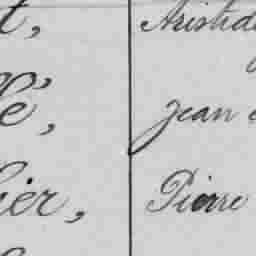 t, Aristid
é, Jean
ier, Pierre